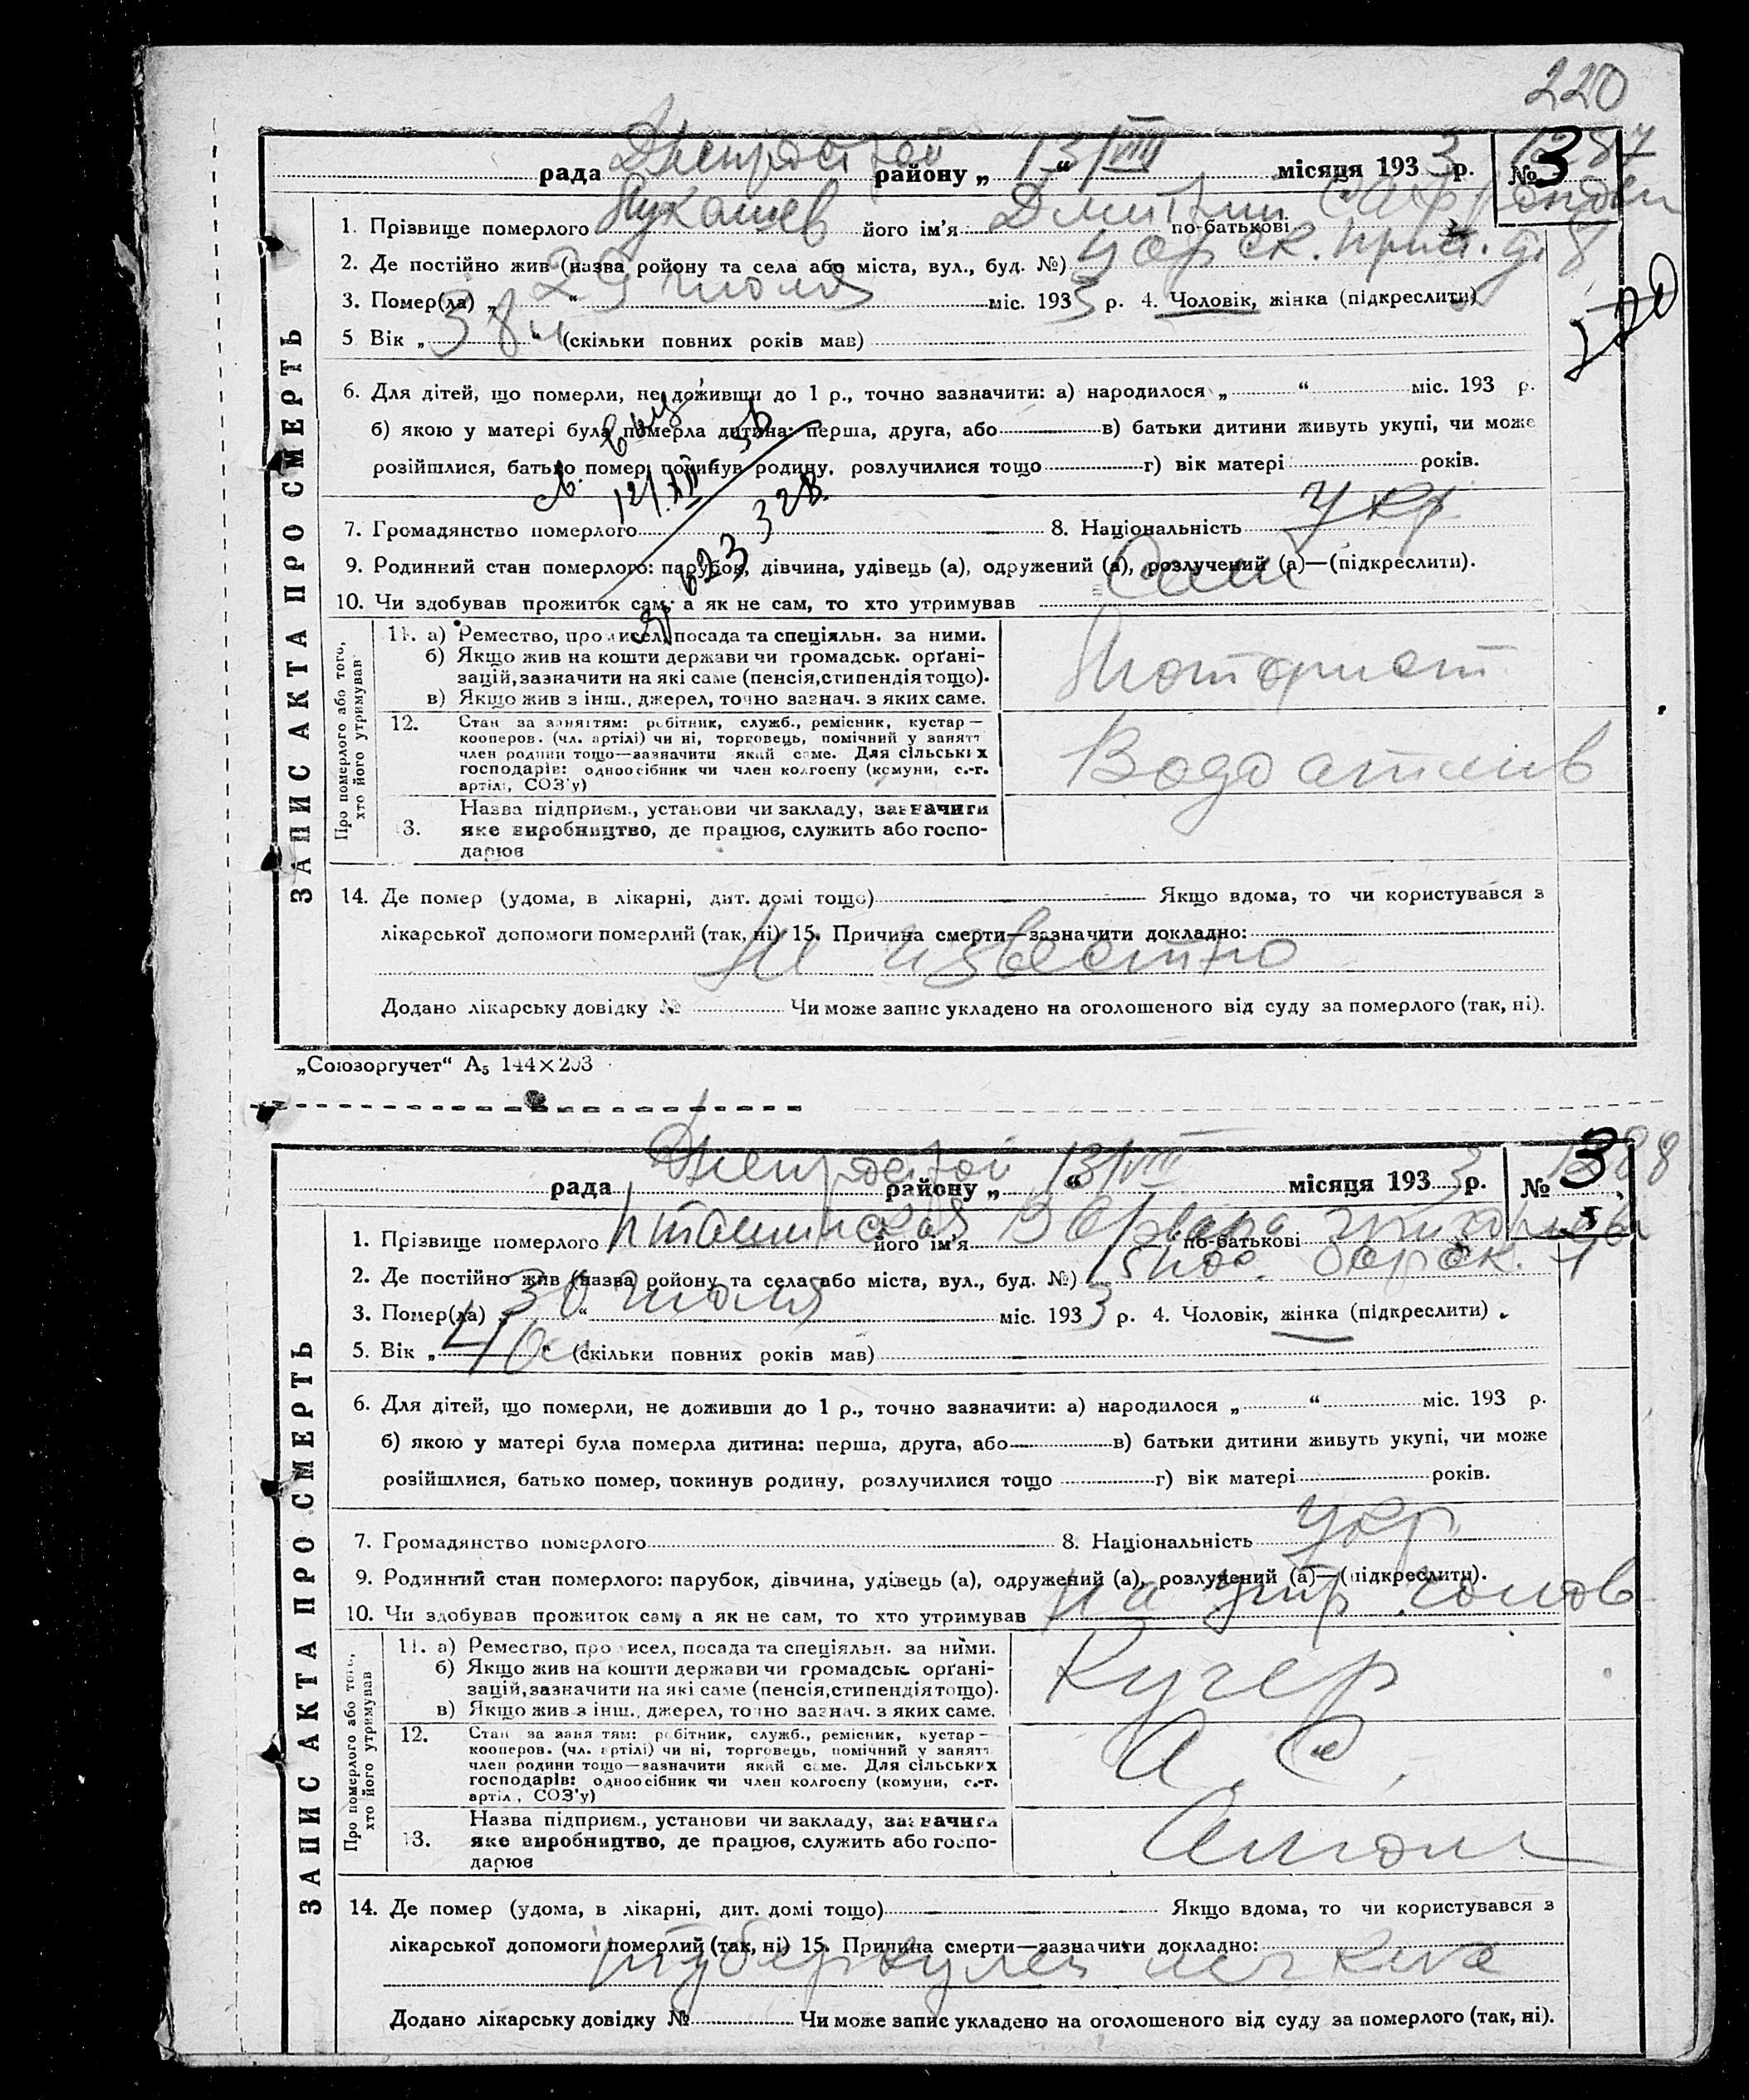 220
рада Днепрострой району „ 13/VIII “ місяця 1933 р. № 3 1287
1. Прізвище померлого Лукашев його ім’я Дмитрий по-батькові
2. Де постійно жив (назва ройону та села або міста, вул., буд. №)
3. Помер(ла) „ 29 июля “ міс. 1933 р. 4. Чоловік, жінка (підкреслити)
5 Вік „ 38 “ (скільки повних років мав)
520
6. Для дітей, що померли, не доживши до 1 р., точно зазначити: а) народилося „ “ міс. 193 р.
б) якою у матері була померла дитина: перша, друга, або в) батьки дитини живуть укупі, чи може
розійшлися, батько помер, покинув родину, розлучилися тощо г) вік матері років.
7. Громадянство померлого 8. Національність Укр
9. Родинний стан померлого: парубок, дівчина, удівець (а), одружений (а), розлучений (а)—(підкреслити).
10. Чи здобував прожиток сам, а як не сам, то хто утримував Сам
ЗАПИС АКТА ПРО СМЕРТЬ
Про померлого або того, хто його утримував
11. а) Ремество, промисел, посада та спеціяльн. за ними.
б) Якщо жив на кошти держави чи громадськ. орґані-
зацій, зазначити на які саме (пенсія, стипендія тощо).
в) Якщо жив з інш., джерел, точно зазнач. з яких саме.
12. Стан за заняттям: робітник, служб., ремісник, кустар—
кооперов. (чл. артілі) чи ні, торговець, помічний у занятт
член родини тощо—зазначити який саме. Для сільських
господарів: одноосібник чи член колгоспу (комуни, с.-г.
артілі, СОЗ’у)
13. Назва підприєм., установи чи закладу, зазначити
яке виробництво, де працює, служить або госпо-
дарює
14. Де помер (удома, в лікарні, дит. домі тощо) Якщо вдома, то чи користувався з
лікарської допомоги померлий (так, ні) 15. Причина смерти—зазначити докладно:
Не известно
Додано лікарську довідку № Чи може запис укладено на оголошеного від суду за померлого (так, ні).
„Союзоргучет“ А5 144×203
рада Днепрострой району „ 13/VIII “ місяця 1933 р. № 3 1288
1. Прізвище померлого Пташинская його ім’я Варвара по-батькові
2. Де постійно жив (назва ройону та села або міста, вул., буд. №) барак. 1
3. Помер(ла) „ 30 июля “ міс. 1933 р. 4. Чоловік, жінка (підкреслити)
5. Вік „ 40 “ (скільки повних років мав)
6. Для дітей, що померли, не доживши до 1 р., точно зазначити: а) народилося „ “ міс. 193 р.
б) якою у матері була померла дитина: перша, друга, або в) батьки дитини живуть укупі, чи може
розійшлися, батько помер, покинув родину, розлучилися тощо г) вік матері років.
7. Громадянство померлого 8. Національність Укр
9. Родинний стан померлого: парубок, дівчина, удівець (а), одружений (а), розлучений (а)—(підкреслити).
10. Чи здобував прожиток сам, а як не сам, то хто утримував
ЗАПИС АКТА ПРО СМЕРТЬ
Про померлого або того, хто його утримував
11. а) Ремество, промисел, посада та спеціяльн. за ними.
б) Якщо жив на кошти держави чи громадськ. орґані-
зацій, зазначити на які саме (пенсія, стипендія тощо).
в) Якщо жив з інш., джерел, точно зазнач. з яких саме.
Кучер
12. Стан за заняттям: робітник, служб., ремісник, кустар—
кооперов. (чл. артілі) чи ні, торговець, помічний у занятт
член родини тощо—зазначити який саме. Для сільських
господарів: одноосібник чи член колгоспу (комуни, с.-г.
артілі, СОЗ’у)
13. Назва підприєм., установи чи закладу, зазначити
яке виробництво, де працює, служить або госпо-
дарює
14. Де помер (удома, в лікарні, дит. домі тощо) Якщо вдома, то чи користувався з
лікарської допомоги померлий (так, ні) 15. Причина смерти—зазначити докладно:
туберкулез легких
Додано лікарську довідку № Чи може запис укладено на оголошеного від суду за померлого (так, ні).